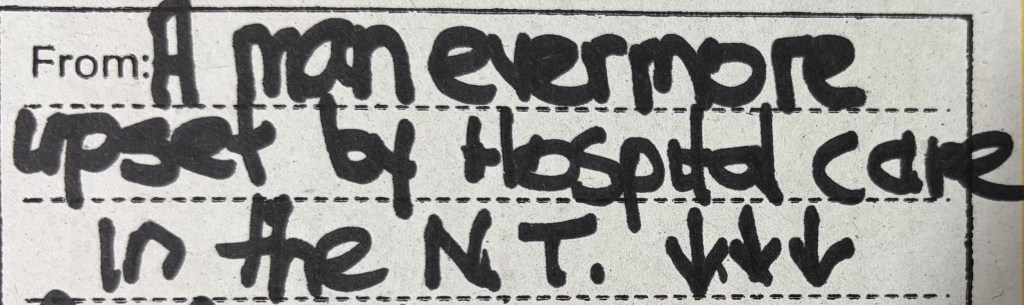 From: A man evermore
upset by Hospital care
in the N.T. ↓↓↓